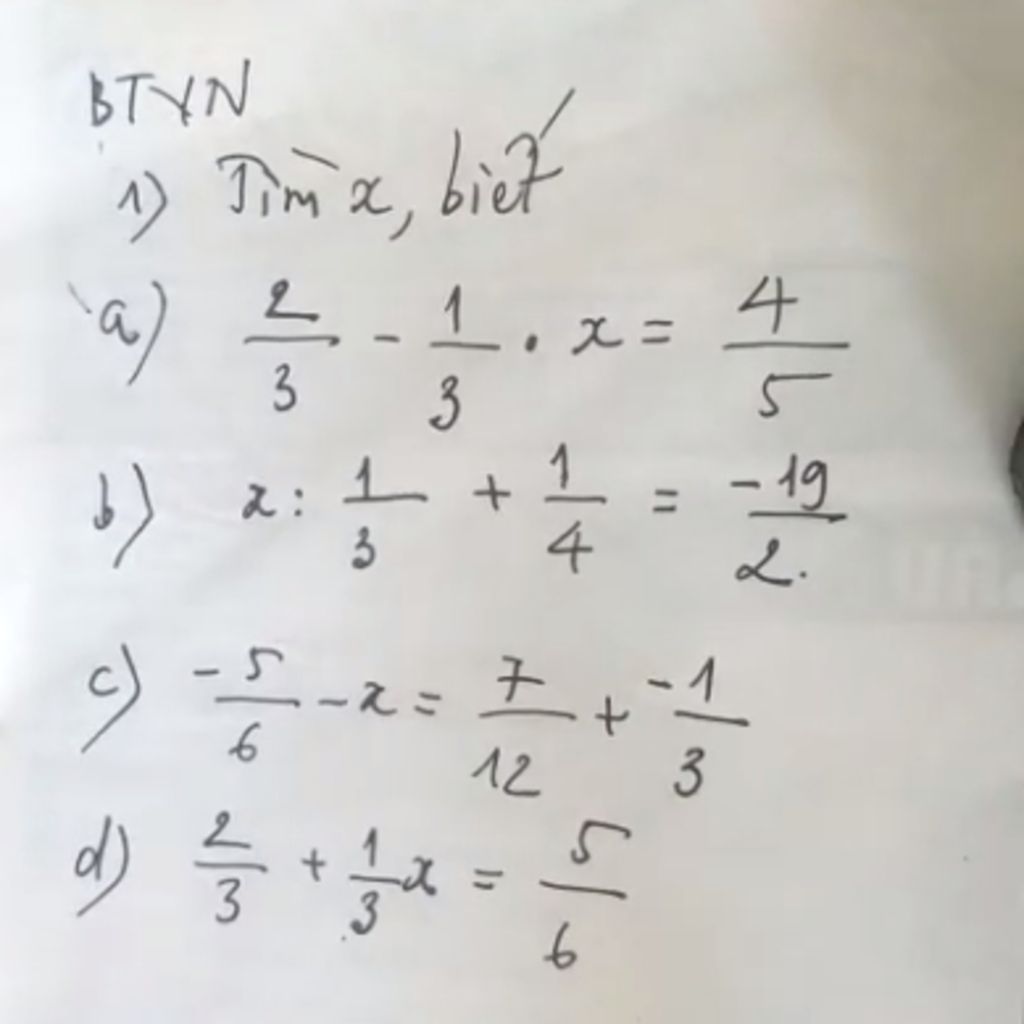 BTVN
1) Tìm x, biết
a) 2/3 - 1/3 . x = 4/5
b) x : 1/3 + 1/4 = -19/2.
c) -5/6 - x = 7/12 + -1/3
d) 2/3 + 1/3 x = 5/6